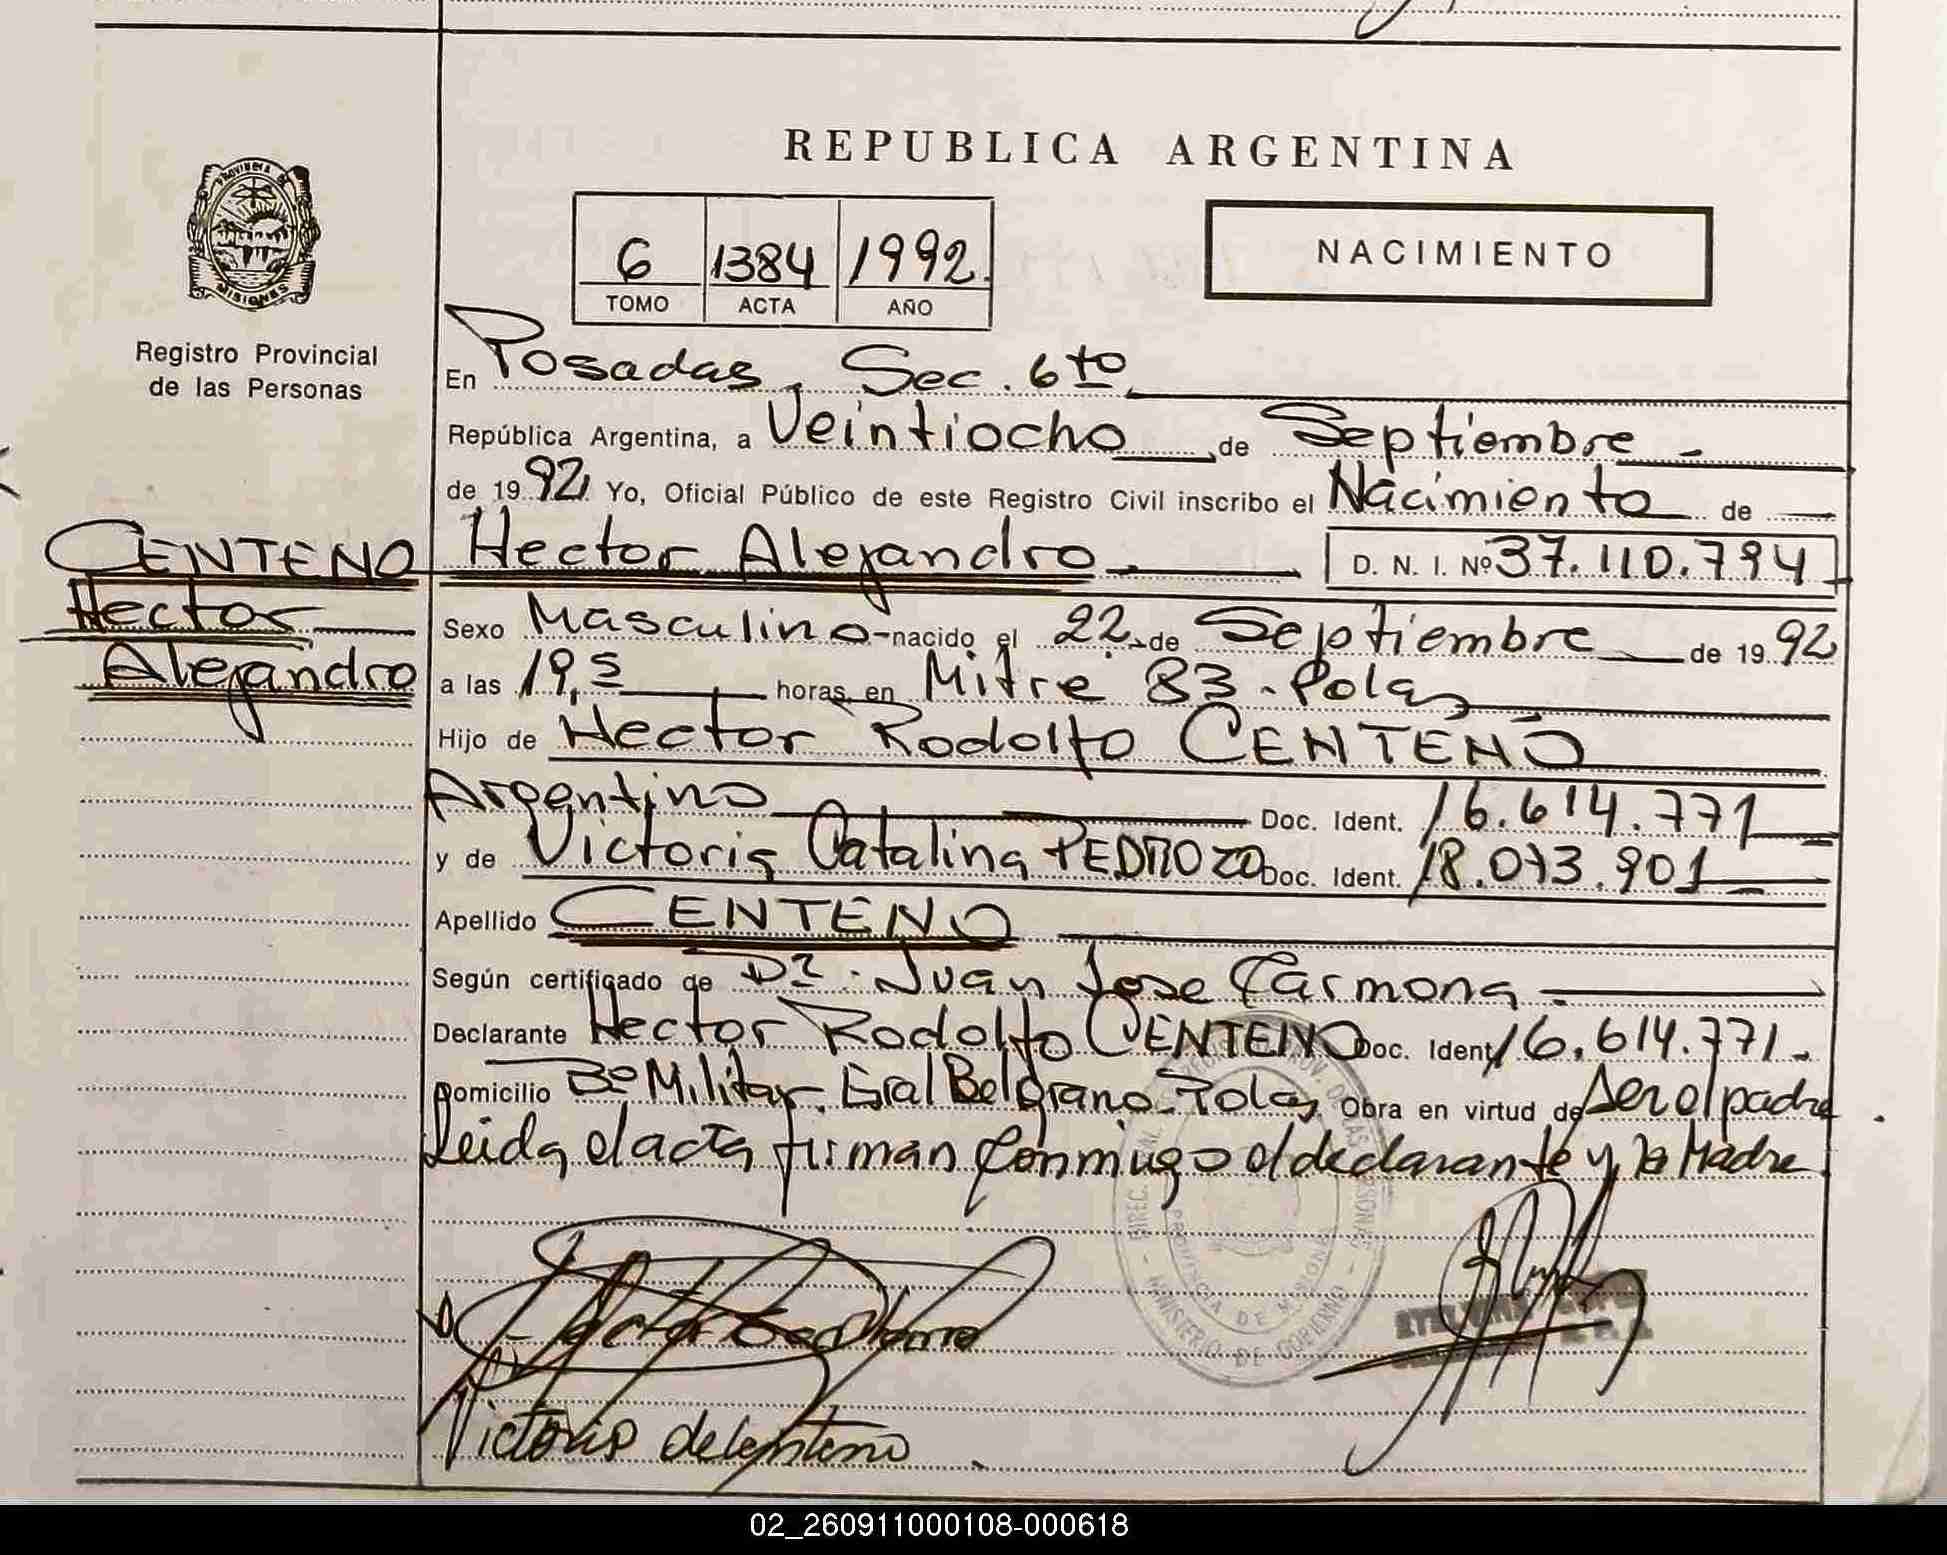 REPUBLICA ARGENTINA
PROVINCIA DE
MISIONES
Registro Provincial
de las Personas
6 1384 1992.
TOMO ACTA AÑO
NACIMIENTO
En Posadas, Sec. 6to
República Argentina, a Veintiocho de Septiembre -
de 1992. Yo, Oficial Público de este Registro Civil inscribo el Nacimiento de
CENTENO
Hector
Alejandro
Hector Alejandro D. N. I. Nº 37.110.794
Sexo Masculino - nacido el 22 de Septiembre de 1992
a las 19,5 horas en Mitre 83 - Pdas
Hijo de Hector Rodolfo CENTENO
Argentino Doc. Ident. 16.614.771
y de Victoria Catalina PEDROZO Doc. Ident. 18.073.901
Apellido CENTENO
Según certificado de Dr. Juan Jose Carmona.
Declarante Hector Rodolfo CENTENO Doc. Ident. 16.614.771.
Domicilio Bº Militar Gral Belgrano - Pdas Obra en virtud de Ser el padre
Leida el acta firman conmigo el declarante y la Madre.
DE MISIONES
MINISTERIO DE GOBIERNO
Victoria de Centeno
02_260911000108-000618